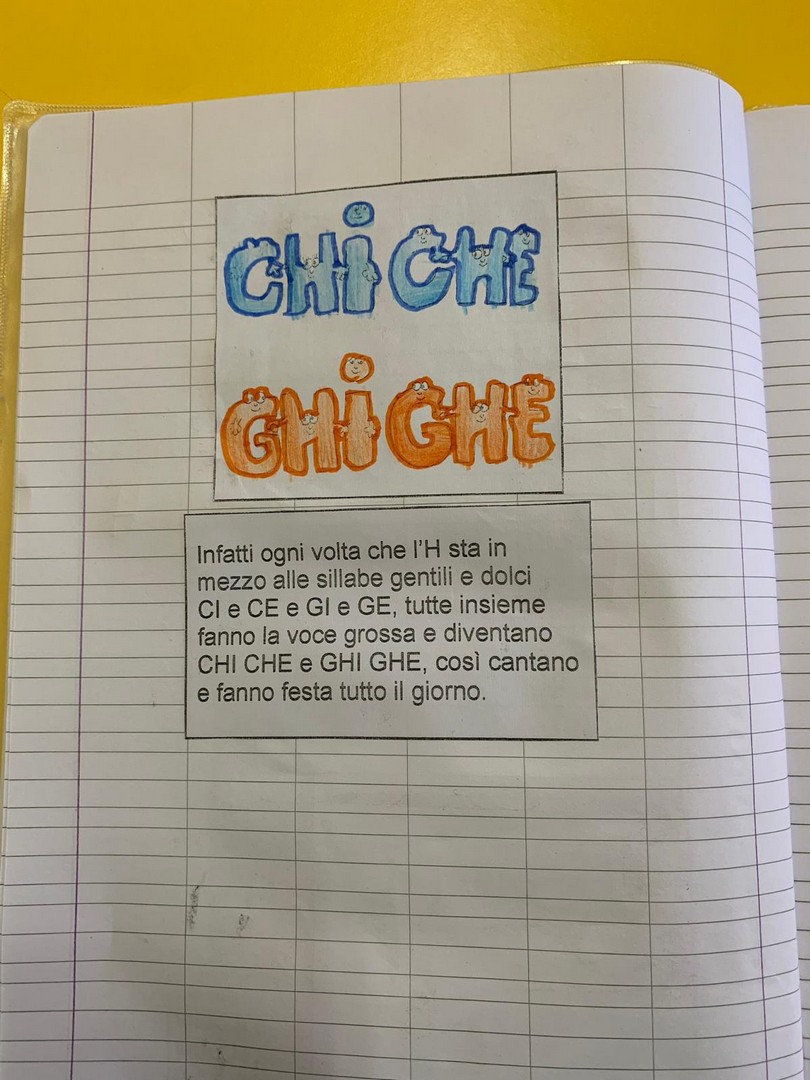 CHi CHE
GHi GHE
Infatti ogni volta che l'H sta in
mezzo alle sillabe gentili e dolci
CI e CE e GI e GE, tutte insieme
fanno la voce grossa e diventano
CHI CHE e GHI GHE, così cantano
e fanno festa tutto il giorno.